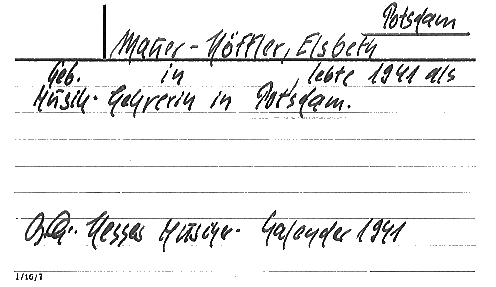 Potsdam
Mauer-Höffler, Elsbeth
Geb. in , lebte 1941 als
Musik-Lehrerin in Potsdam.
Hesses Musiker-Kalender 1941
1/16/1